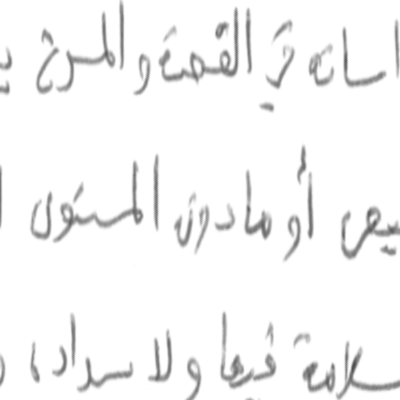 اساته في القصة والمسرح
أو ما دون المستوى
سلامة فيها ولا سداد،